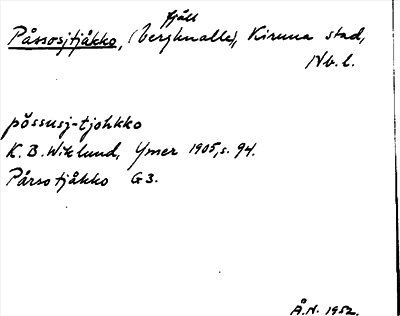 fjäll
Påssosjtjåkko, (bergknalle), Kiruna stad,
Nb. l.
påssusj-tjohkko
K. B. Wiklund, Ymer 1905, s. 94.
Pårsotjåkko G3.
Å.N. 1952.